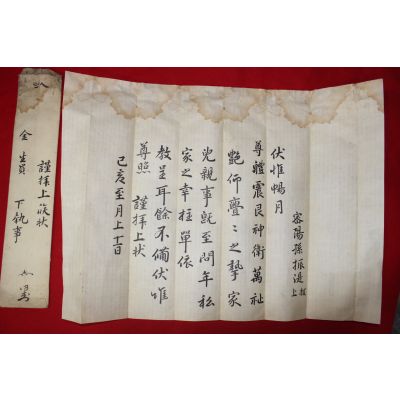 密陽孫振湜 上狀
伏惟暢月
尊體震艮神衛萬祉
艶仰亹亹之摯家
兒親事旣至問年私
家之幸柱單依
敎呈耳餘不備伏惟
尊照 謹拜上狀
己亥至月上十日
謹拜上候狀
金生員 下執事